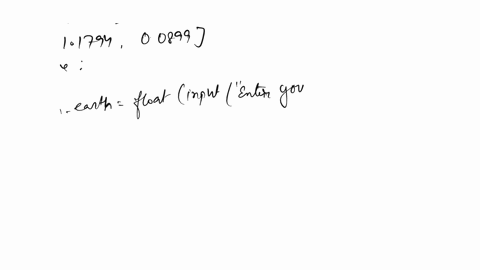 1.1794, 0.0899]
e :
earth = float (input ("Enter you